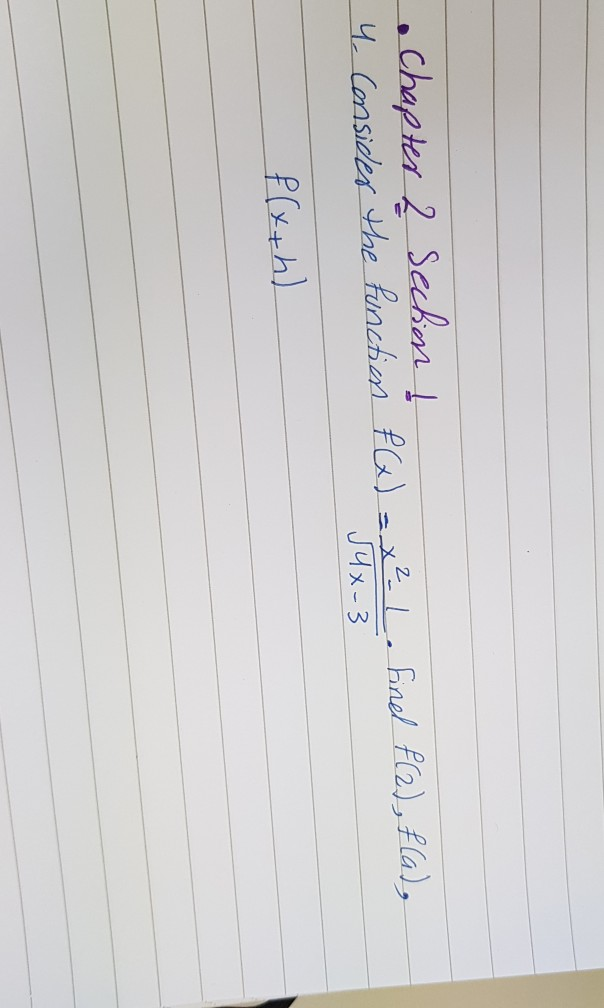 • Chapter 2 Section 1
4- Consider the function f(x) = x² - 1 / √4x - 3 . Find f(2), f(a),
f(x+h)